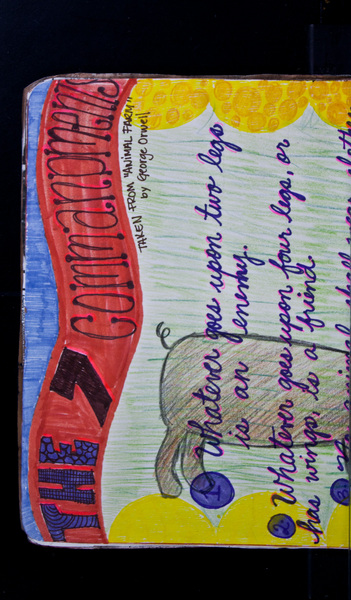 THE 7 COMMANDMENTS
TAKEN FROM "ANIMAL FARM"
by George Orwell
1 Whatever goes upon two legs
is an enemy.
2 Whatever goes upon four legs, or
has wings, is a friend.
3